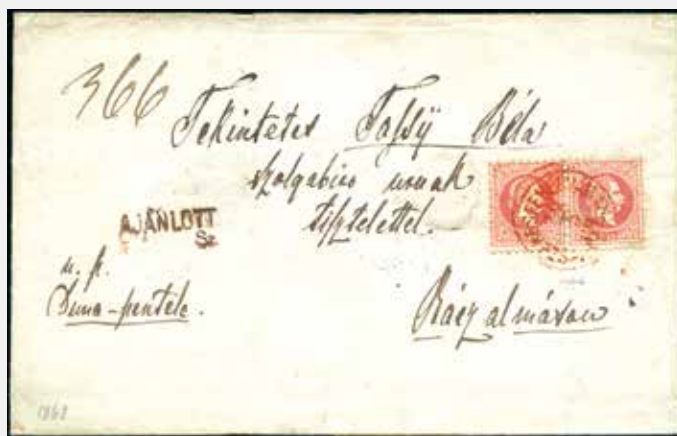 366
Tekintetes Tassÿ Béla
szolgabiro urnak
tisztelettel.
AJÁNLOTT
Sz.
u. p.
Duna-pentele.
Rácz almáson
1868